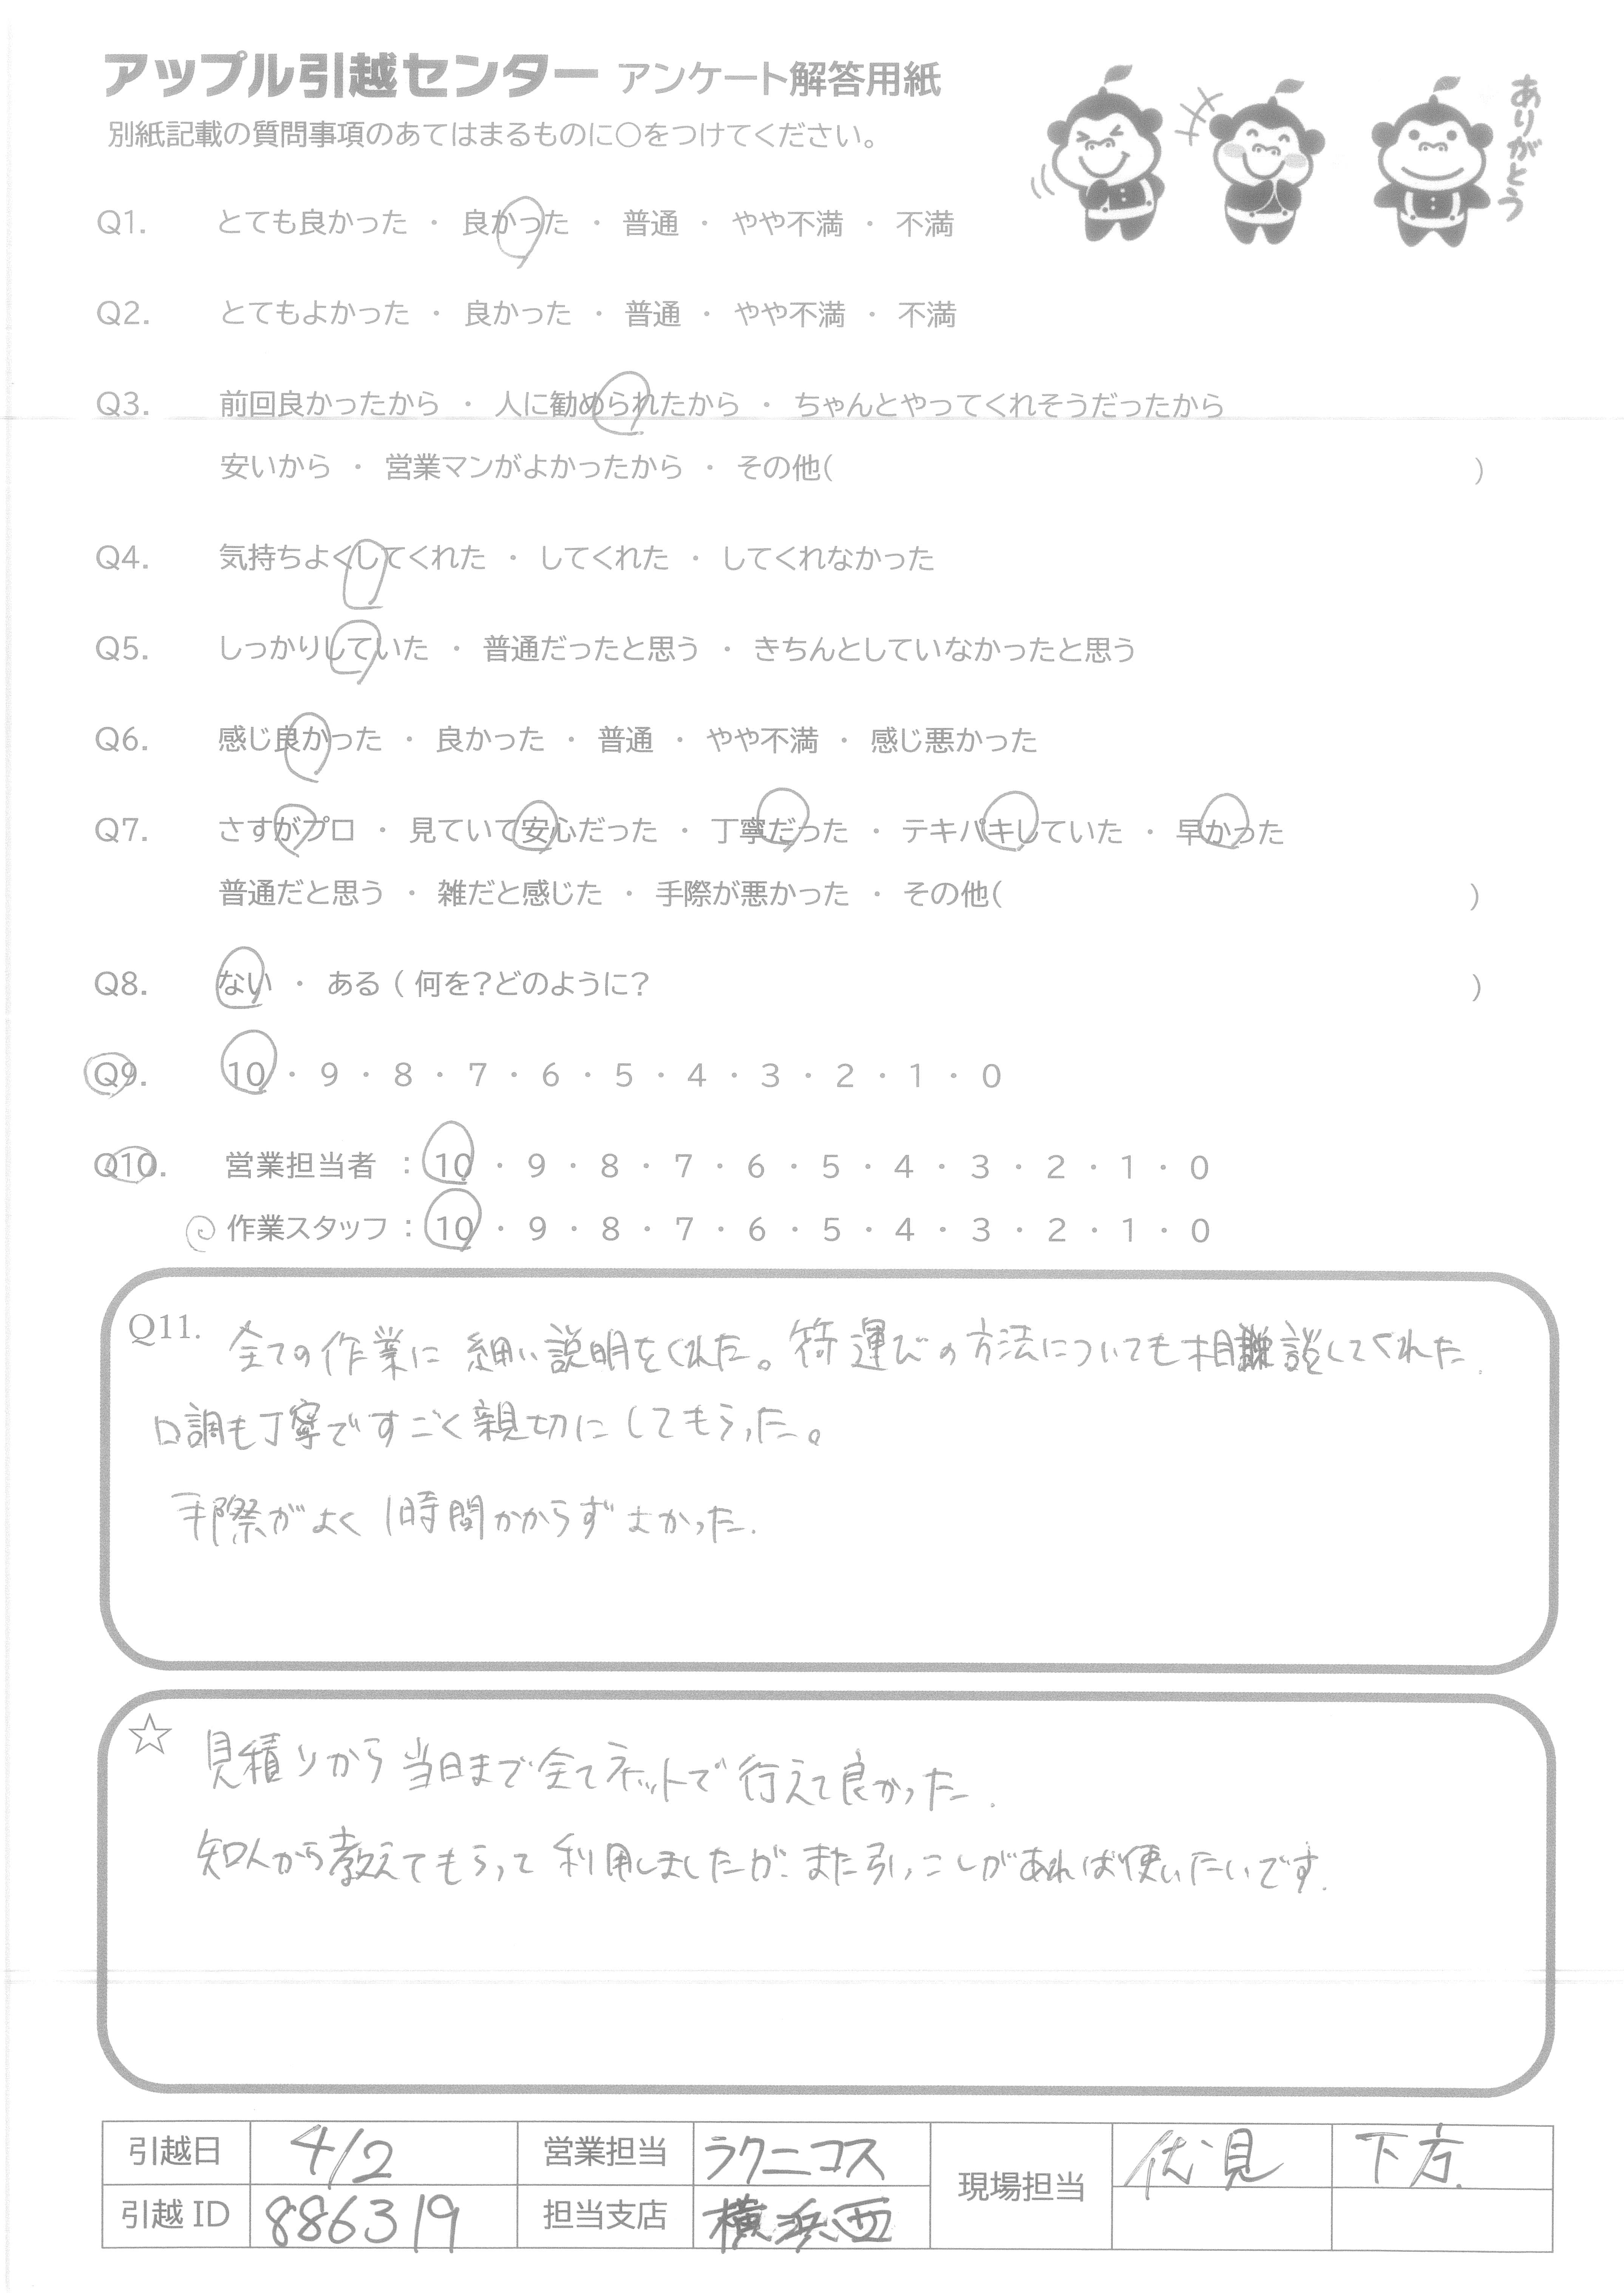 アップル引越センター アンケート解答用紙
別紙記載の質問事項のあてはまるものに○をつけてください。
ありがとう
Q1. とても良かった ・ 良かった ・ 普通 ・ やや不満 ・ 不満
Q2. とてもよかった ・ 良かった ・ 普通 ・ やや不満 ・ 不満
Q3. 前回良かったから ・ 人に勧められたから ・ ちゃんとやってくれそうだったから
安いから ・ 営業マンがよかったから ・ その他( )
Q4. 気持ちよくしてくれた ・ してくれた ・ してくれなかった
Q5. しっかりしていた ・ 普通だったと思う ・ きちんとしていなかったと思う
Q6. 感じ良かった ・ 良かった ・ 普通 ・ やや不満 ・ 感じ悪かった
Q7. さすがプロ ・ 見ていて安心だった ・ 丁寧だった ・ テキパキしていた ・ 早かった
普通だと思う ・ 雑だと感じた ・ 手際が悪かった ・ その他( )
Q8. ない ・ ある ( 何を?どのように? )
Q9. 10 ・ 9 ・ 8 ・ 7 ・ 6 ・ 5 ・ 4 ・ 3 ・ 2 ・ 1 ・ 0
Q10. 営業担当者 : 10 ・ 9 ・ 8 ・ 7 ・ 6 ・ 5 ・ 4 ・ 3 ・ 2 ・ 1 ・ 0
作業スタッフ : 10 ・ 9 ・ 8 ・ 7 ・ 6 ・ 5 ・ 4 ・ 3 ・ 2 ・ 1 ・ 0
Q11. 全ての作業に 細い説明をくれた。荷運びの方法についても相談してくれた.
口調も丁寧ですごく親切にしてもらった。
手際がよく 1時間かからずよかった.
☆ 見積りから当日まで全てネットで行えて良かった.
知人から教えてもらって利用しましたが、また引っこしがあれば使いたいです.
引越日 4/2 営業担当 ラクニコス 現場担当 伏見 下方.
引越 ID 886319 担当支店 横浜西